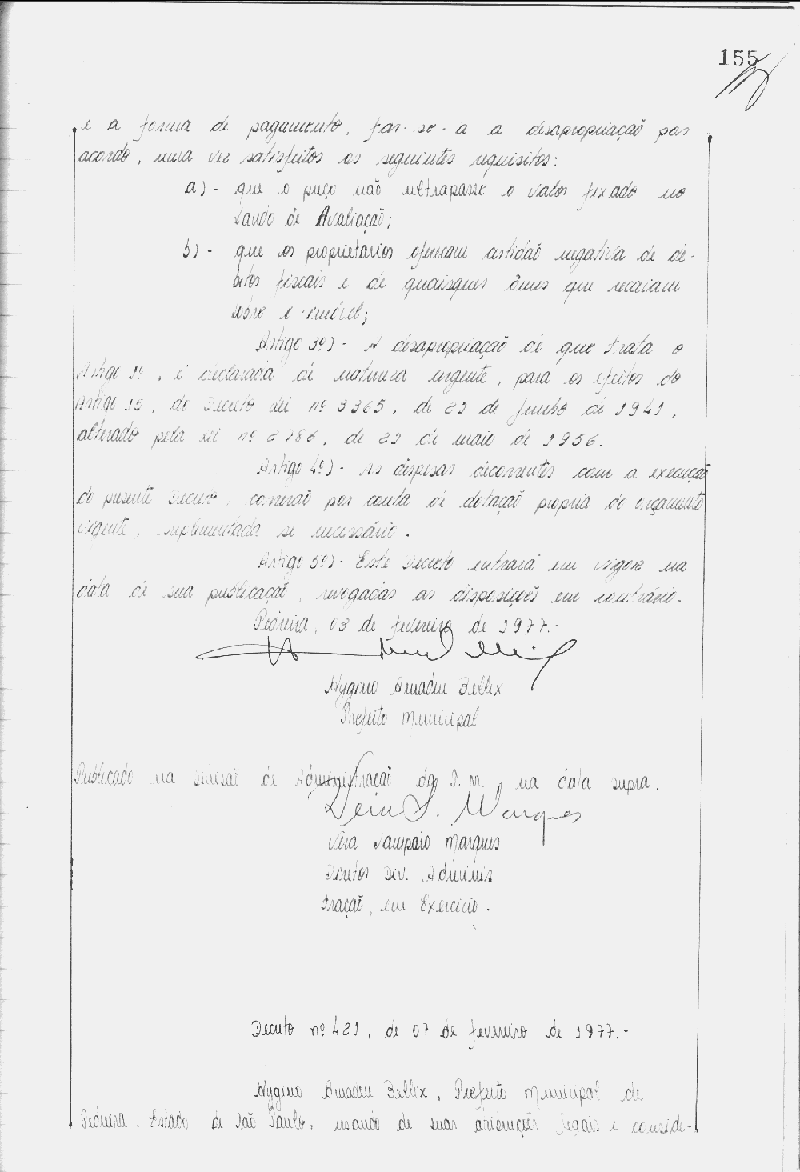 155
e a forma de pagamento, far-se-a a desapropriação por
acordo, uma vez satisfeitos os seguintes requisitos:
a)- que o preço não ultrapasse o valor fixado no
Laudo de Avaliação;
b)- que os proprietários ofereçam certidão negativa de dé-
bitos fiscais e de quaisquer ônus que recaiam
sobre o imóvel;
Artigo 3º)- A desapropriação de que trata o
Artigo 1º, é declarada de natureza urgente, para os efeitos do
Artigo 15, do Decreto Lei nº 3365, de 21 de Junho de 1941,
alterado pela Lei nº 2786, de 21 de maio de 1956.
Artigo 4º)- As despesas decorrentes com a execução
do presente Decreto, correrão por conta de dotação propria do orçamento
vigente, suplementada se necessário.
Artigo 5º)- Este Decreto entrará em vigor na
data de sua publicação, revogadas as disposições em contrário.
03 de fevereiro de 1977.-
Hygino Amadeu Bellix
Prefeito Municipal
Publicado na Divisão de Administração da P.M., na data supra.
Vera S. Marques
Vera Sampaio Marques
Diretor Div. Adminis
tração, em Exercício.
Decreto nº 421, de 07 de fevereiro de 1977.-
Hygino Amadeu Bellix, Prefeito Municipal de
Estado de São Paulo, usando de suas atribuições legais e conside-